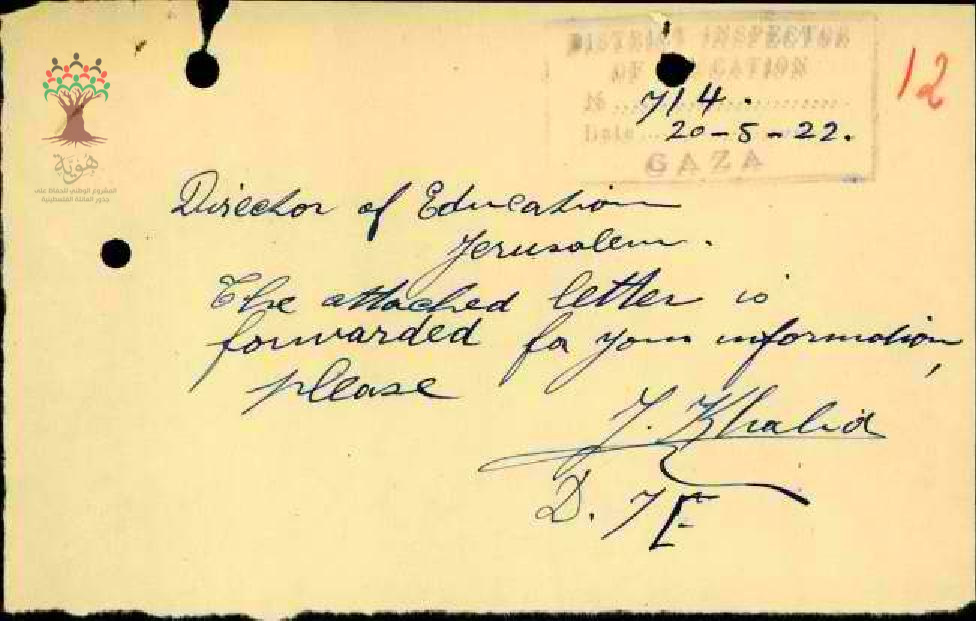 DISTRICT INSPECTOR
OF EDUCATION
12
№ 714.
Date 20-5-22.
GAZA
هوية
المشروع الوطني للحفاظ على
جذور العائلة الفلسطينية
Director of Education
Jerusalem.
The attached letter is
forwarded for your information,
please
J. Khalid
D. I E